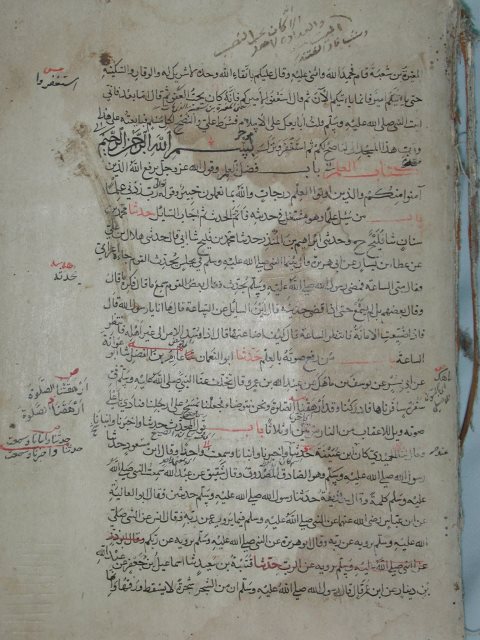 المغيرة بن شعبة قام فحمد الله واثنى عليه وقال عليكم باتقاء الله وحده لا شريك له والوقار والسكينة
حتى ياتيكم امير فانما ياتيكم الآن ثم قال استعفوا لاميركم فانه كان يحب العفو ثم قال اما بعد فانى
اتيت النبى صلى الله عليه وسلم قلت ابايعك على الاسلام فشرط على والنصح لكل مسلم فبايعته على هذا
ورب هذا المسجد انى لناصح لكم ثم استغفر ونزل بسم الله الرحمن الرحيم
كتاب العلم باب فضل العلم وقول الله عز وجل يرفع الله الذين
آمنوا منكم والذين اوتوا العلم درجات والله بما تعملون خبير وقوله رب زدنى علما
باب من سئل علما وهو مشتغل فى حديثه فاتم الحديث ثم اجاب السائل حدثنا محمد بن
سنان ثنا فليح ح وحدثنى ابراهيم بن المنذر حدثنا محمد بن فليح ثنا ابى قال حدثنى هلال بن على
عن عطاء بن يسار عن ابى هريرة قال بينما النبى صلى الله عليه وسلم فى مجلس يحدث القوم جاءه اعرابى
فقال متى الساعة فمضى رسول الله صلى الله عليه وسلم يحدث فقال بعض القوم سمع ما قال فكره ما قال
وقال بعضهم بل لم يسمع حتى اذا قضى حديثه قال اين السائل عن الساعة قال ها انا يا رسول الله قال
فاذا ضيعت الامانة فانتظر الساعة قال كيف اضاعتها قال اذا وسد الامر الى غير اهله فانتظر
الساعة باب من رفع صوته بالعلم حدثنا ابو النعمان ثنا ابو عوانة
عن ابى بشر عن يوسف بن ماهك عن عبد الله بن عمرو قال تخلف عنا النبى صلى الله عليه وسلم فى
سفرة سافرناها فادركنا وقد ارهقتنا الصلوة ونحن نتوضأ فجعلنا نمسح على ارجلنا فنادى باعلى
صوته ويل للاعقاب من النار مرتين او ثلاثا باب قول المحدث حدثنا واخبرنا وانبانا
وقال لنا الحميدى كان عند ابن عيينة حدثنا واخبرنا وانبانا وسمعت واحدا وقال ابن مسعود حدثنا
رسول الله صلى الله عليه وسلم وهو الصادق المصدوق وقال شقيق عن عبد الله سمعت النبى صلى الله
عليه وسلم كلمة وقال حذيفة حدثنا رسول الله صلى الله عليه وسلم حديثين وقال ابو العالية
عن ابن عباس رضى الله عنهما عن النبى صلى الله عليه وسلم فيما يروى عن ربه وقال انس عن النبى صلى
الله عليه وسلم يرويه عن ربه وقال ابو هريرة عن النبى صلى الله عليه وسلم يرويه عن ربكم
عن النبى صلى الله عليه وسلم يرويه عن ربه حدثنا قتيبة بن سعيد ثنا اسماعيل بن جعفر عن عبد الله
بن دينار عن ابن عمر قال قال رسول الله صلى الله عليه وسلم ان من الشجر شجرة لا يسقط ورقها وانها
استغفروا
حدثه
ارهقنا الصلوة
ارهقتنا الصلوة